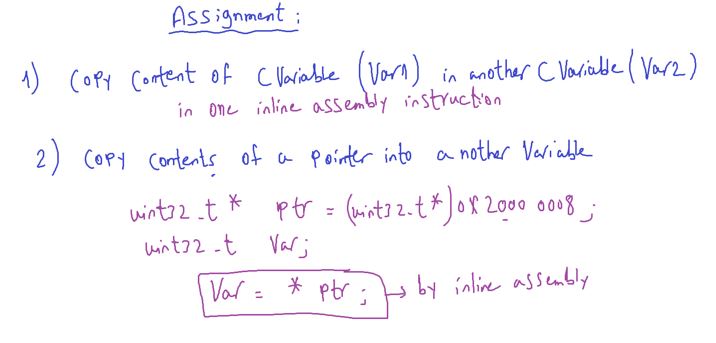 Assignment :
1) Copy Content of C Variable (Var1) in another C Variable (Var2)
in one inline assembly instruction
2) Copy Contents of a pointer into another Variable
uint32_t * ptr = (uint32_t*) 0x2000 0008 ;
uint32_t Var;
Var = * ptr ; → by inline assembly